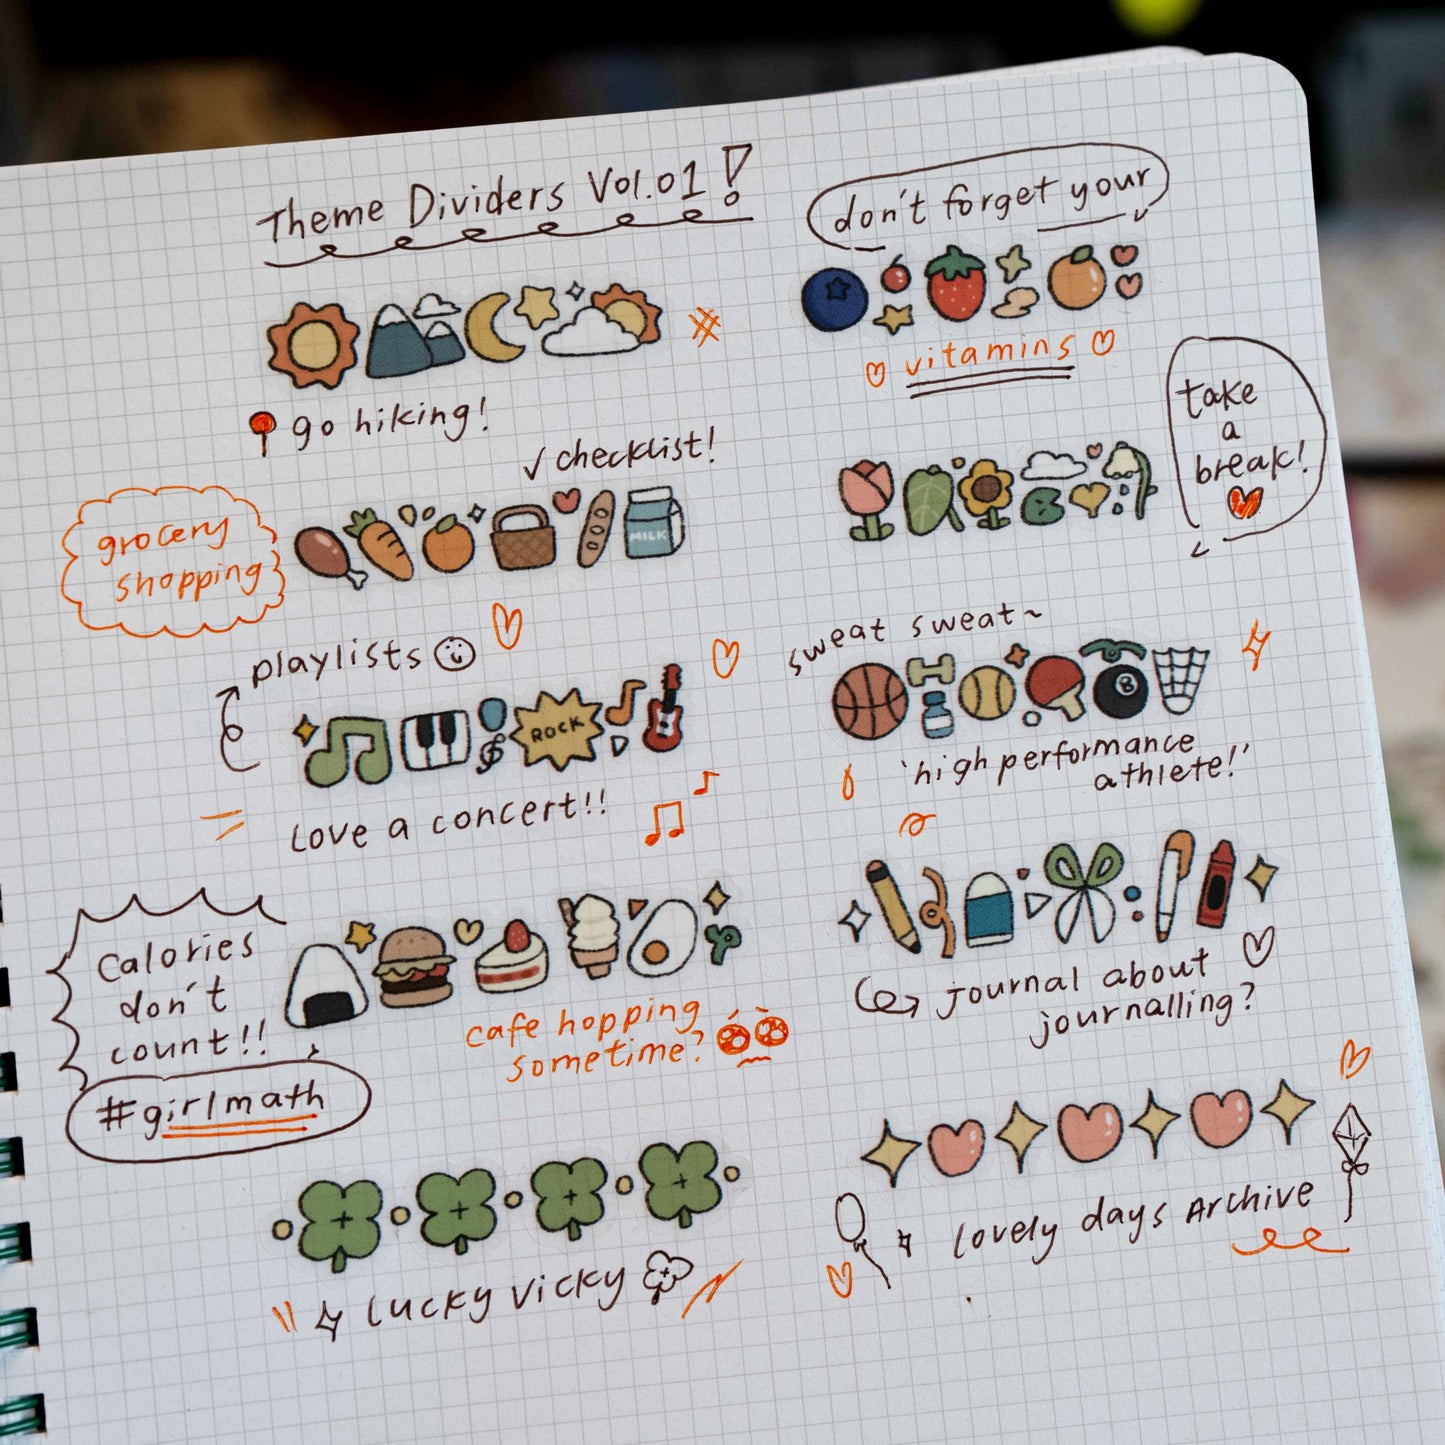 Theme Dividers Vol.01!
go hiking!
✓ checklist!
grocery
shopping
MILK
playlists
ROCK
Love a concert!!
Calories
don't
count!!
#girlmath
cafe hopping
sometime?
Lucky Vicky
don't forget your
vitamins
take
a
break!
sweat sweat~
8
'high performance
athlete!'
Journal about
journalling?
Lovely days Archive